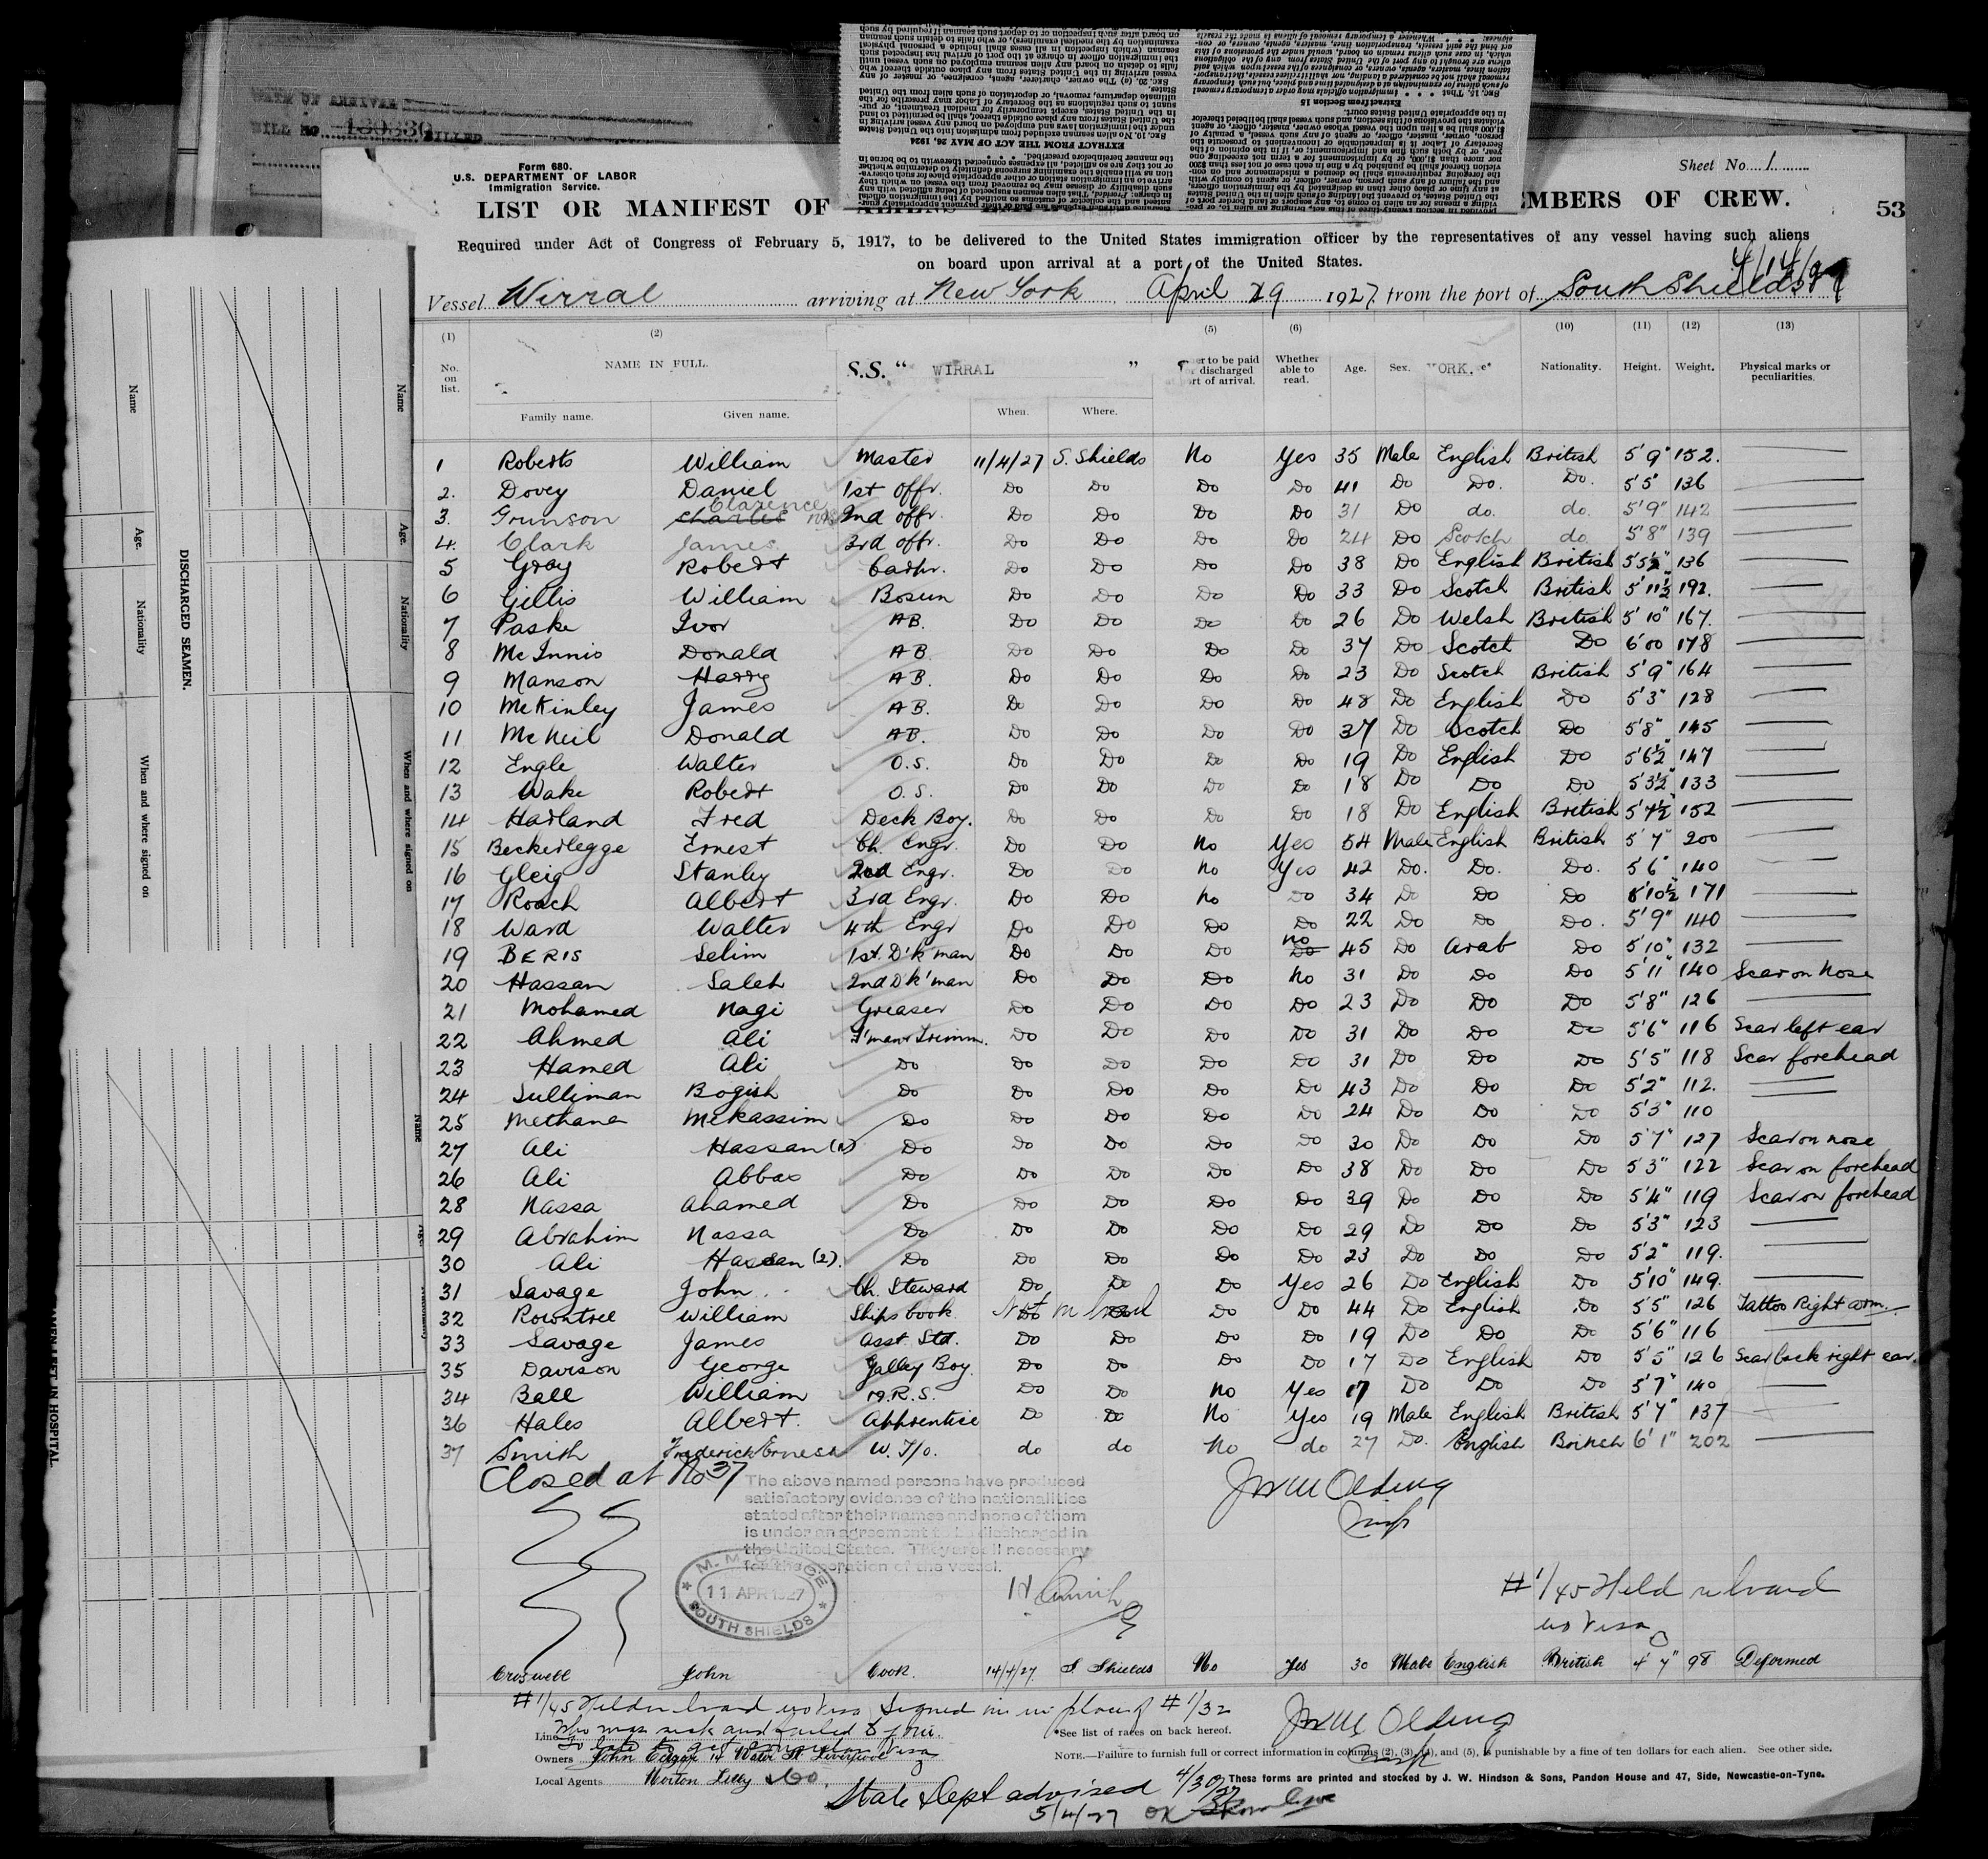 Form 680.
U.S. DEPARTMENT OF LABOR
Immigration Service.
Sheet No. 1
LIST OR MANIFEST OF ALIENS MEMBERS OF CREW.
53
Required under Act of Congress of February 5, 1917, to be delivered to the United States immigration officer by the representatives of any vessel having such aliens
on board upon arrival at a port of the United States.
4/14/27
Vessel Wirral arriving at New York April 29 1927, from the port of South Shields
(1) (2) (5) (6) (10) (11) (12) (13)
No. on list. NAME IN FULL. S.S. " WIRRAL " to be paid discharged port of arrival. Whether able to read. Age. Sex. YORK. Nationality. Height. Weight. Physical marks or peculiarities.
Family name. Given name. When. Where.
1 Roberts William Master 11/4/27 S. Shields No Yes 35 Male English British 5'9" 152. —
2. Dovey Daniel 1st offr. Do Do Do Do 41 Do Do. Do. 5'5" 136 —
3. Grunson Charles Clarence 2nd offr. Do Do Do Do 31 Do do. do. 5'9" 142 —
4. Clark James 3rd offr. Do Do Do Do 24 Do Scotch do. 5'8" 139 —
5 Gray Robert Carpr. Do Do Do Do 38 Do English British 5'5½" 136 —
6 Gillis William Bosun Do Do Do Do 33 Do Scotch British 5'11½ 192. —
7 Paske Ivor AB. Do Do Do Do 26 Do Welsh British 5'10" 167. —
8 McInnis Donald AB. Do Do Do Do 37 Do Scotch Do 6'00 178 —
9 Manson Harry AB. Do Do Do Do 23 Do Scotch British 5'9" 164 —
10 McKinley James AB. Do Do Do Do 48 Do English Do 5'3" 128 —
11 McNeil Donald AB. Do Do Do Do 37 Do Scotch Do 5'8" 145 —
12 Engle Walter O.S. Do Do Do Do 19 Do English Do 5'6½" 147 —
13 Wake Robert O.S. Do Do Do Do 18 Do Do Do 5'3½" 133 —
14 Harland Fred Deck Boy. Do Do Do Do 18 Do English British 5'7½ 152 —
15 Beckerlegge Ernest Ch. Engr. Do Do No Yes 54 Male English British 5'7" 200 —
16 Gleig Stanley 2nd Engr. Do Do No Yes 42 Do. Do. Do. 5'6" 140 —
17 Roach Albert 3rd Engr. Do Do No Do 34 Do Do Do 5'10½ 171 —
18 Ward Walter 4th Engr Do Do Do Do 22 Do Do Do. 5'9" 140 —
19 BERIS Selim 1st. D'k'man Do Do Do Do no 45 Do Arab Do 5'10" 132 —
20 Hassan Saleh 2nd D'k'man Do Do Do No 31 Do Do Do 5'11" 140 Scar on Nose
21 Mohamed Nagi Greaser Do Do Do Do 23 Do Do Do 5'8" 126 —
22 Ahmed Ali F'man & Trimm. Do Do Do Do 31 Do Do Do 5'6" 116 Scar left ear
23 Hamed Ali Do Do Do Do Do 31 Do Do Do 5'5" 118 Scar forehead
24 Sulliman Bogish Do Do Do Do Do 43 Do Do Do 5'2" 112. —
25 Methana Mckassim Do Do Do Do Do 24 Do Do Do 5'3" 110 —
27 Ali Hassan (1) Do Do Do Do Do 30 Do Do Do 5'7" 127 Scar on nose
26 Ali Abbas Do Do Do Do Do 38 Do Do Do 5'3" 122 Scar on forehead
28 Nassa Ahamed Do Do Do Do Do 39 Do Do Do 5'4" 119 Scar on forehead
29 Abrahim Nassa Do Do Do Do Do 29 Do Do Do 5'3" 123 —
30 Ali Hassan (2). Do Do Do Do Do 23 Do Do Do 5'2" 119. —
31 Savage John Ch. Steward Do Do Do Yes 26 Do English Do 5'10" 149. —
32 Rowntree William Ships Cook Not on board Do Do 44 Do English Do 5'5" 126 Tattoo Right arm.
33 Savage James Asst Std. Do Do Do Do 19 Do Do Do 5'6" 116 —
35 Davison George Galley Boy. Do Do Do Do 17 Do English Do 5'5" 126 Scar back right ear.
34 Ball William M.R.S. Do Do No Yes 17 Do Do Do 5'7" 140 —
36 Hales Albert. Apprentice Do Do No Yes 19 Male English British 5'7" 137 —
37 Smith Frederick Ernest W. T/o. do do No do 27 Do. English British 6'1" 202 —
Closed at No 37
The above named persons have produced
satisfactory evidence of the nationalities
stated after their names and none of them
is under an agreement to be discharged in
the United States. They are all necessary
for the operation of the vessel.
JWM Olding
Insp
11 APR 1927
SOUTH SHIELDS
#1/45 Held on board
no visa
Croswell John Cook. 14/4/27. S. Shields No Yes 30 Male English British 4'7" 98 Deformed
#1/45 Held on board no visa signed on in place of #1/32
Line who was sick and failed to join.
*See list of races on back hereof.
JWM Olding
Insp
To late to get consular visa
Owners John Edgar 14 Water St Liverpool
NOTE.—Failure to furnish full or correct information in columns (2), (3), (4), and (5), is punishable by a fine of ten dollars for each alien. See other side.
Local Agents Norton Lilly & Co.
These forms are printed and stocked by J. W. Hindson & Sons, Pandon House and 47, Side, Newcastle-on-Tyne.
State Dept advised 4/30/27
5/4/27 OK
DISCHARGED SEAMEN.
Name Age. Nationality When and where signed on
Name Age. Nationality When and where signed on
Name
SEAMEN LEFT IN HOSPITAL.
BILL NO. BILLED
Extract from Section 15
EXTRACT FROM THE ACT OF MAY 26, 1924